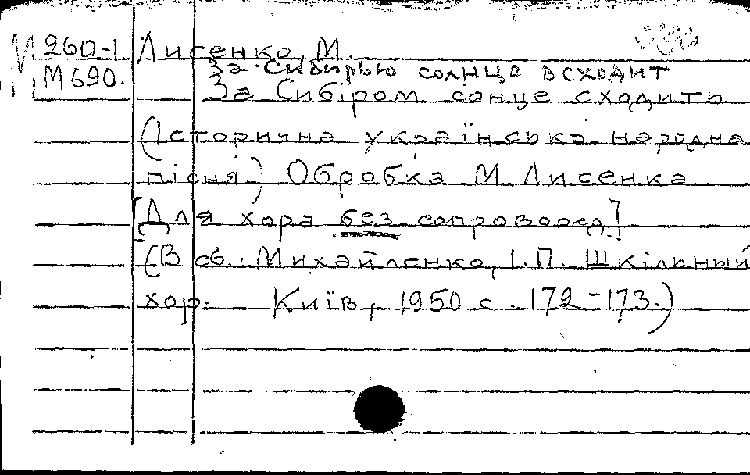 М 260-1 Лисенко, М.
М690. За Сибирью солнце всходит
За Сибіром сонце сходить
(Історична українська народна
пісня) Обробка М. Лисенка
[Для хора без сопровожд]
(В сб.: Михайленко, І.П. Шкільный
хор. Київ, 1950 с. 172-173.)